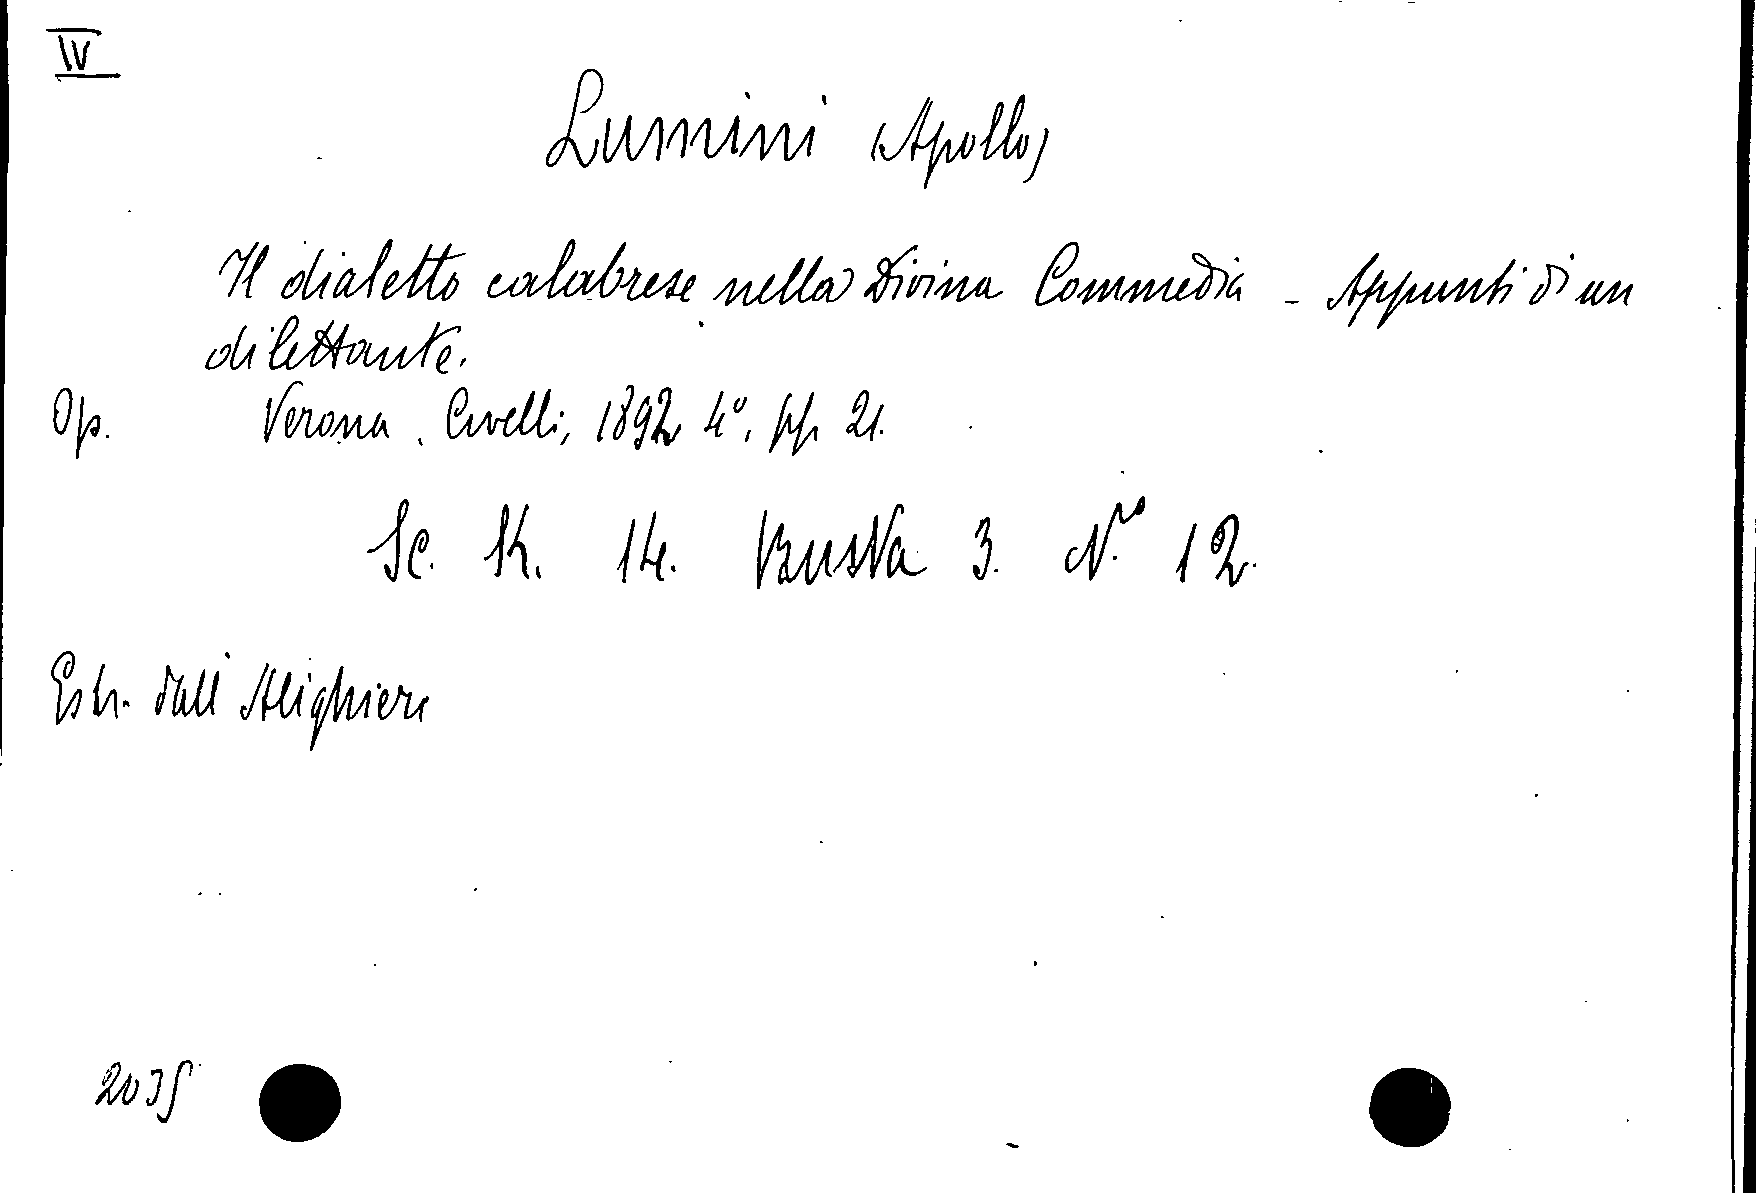 IV
Lumini (Apollo)
Il dialetto calabrese nella Divina Commedia - Appunti di un
dilettante.
Op. Verona, Civelli, 1892 4°, pp 21.
Sc. K. 14. Busta 3. N.ro 12.
Estr. dall'Alighieri
2035